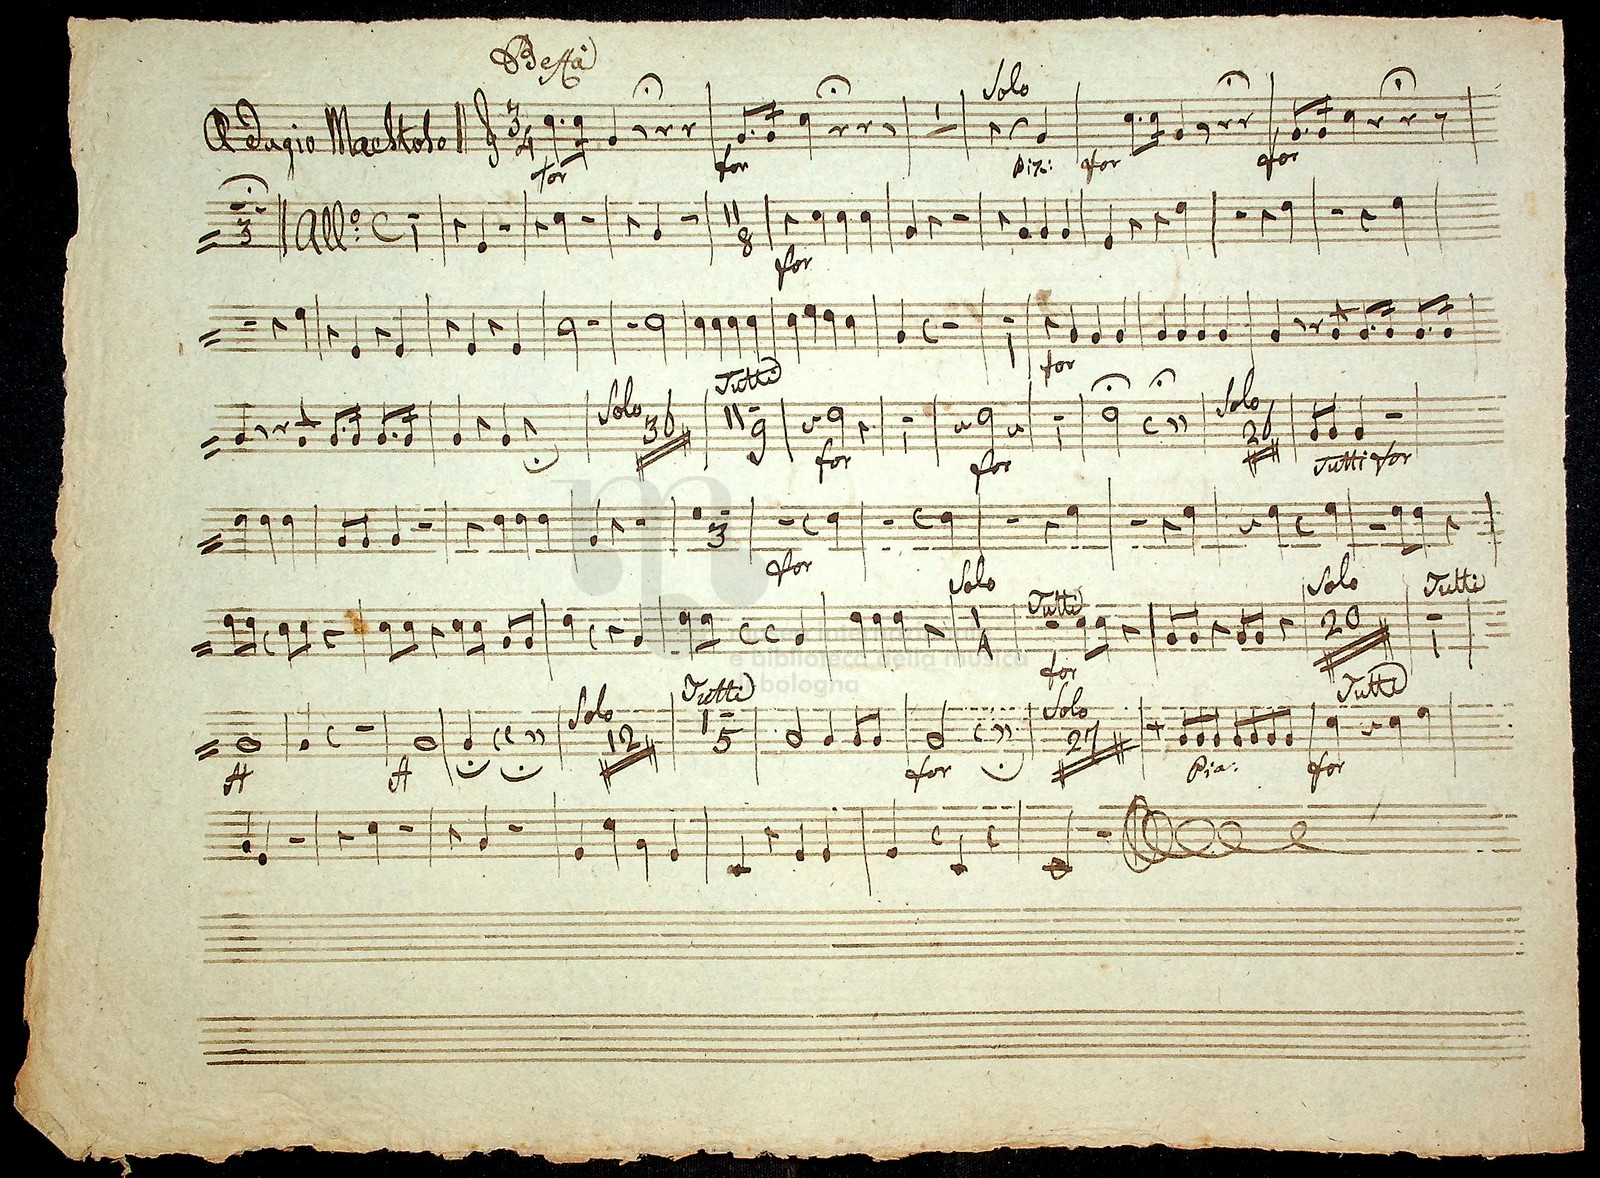 Be fa
Adagio Maestoso 3/4
Solo
for for Pia: for for
3 All.º C 8
for
for
Solo 36 Tutti 9 Solo 26
for for Tutti for
3
for
Solo Tutti Solo Tutti
1 20 1
for
museo internazionale
e biblioteca della musica
di bologna
Solo 12 Tutti 5 Solo 27 Tutti
for Pia: for